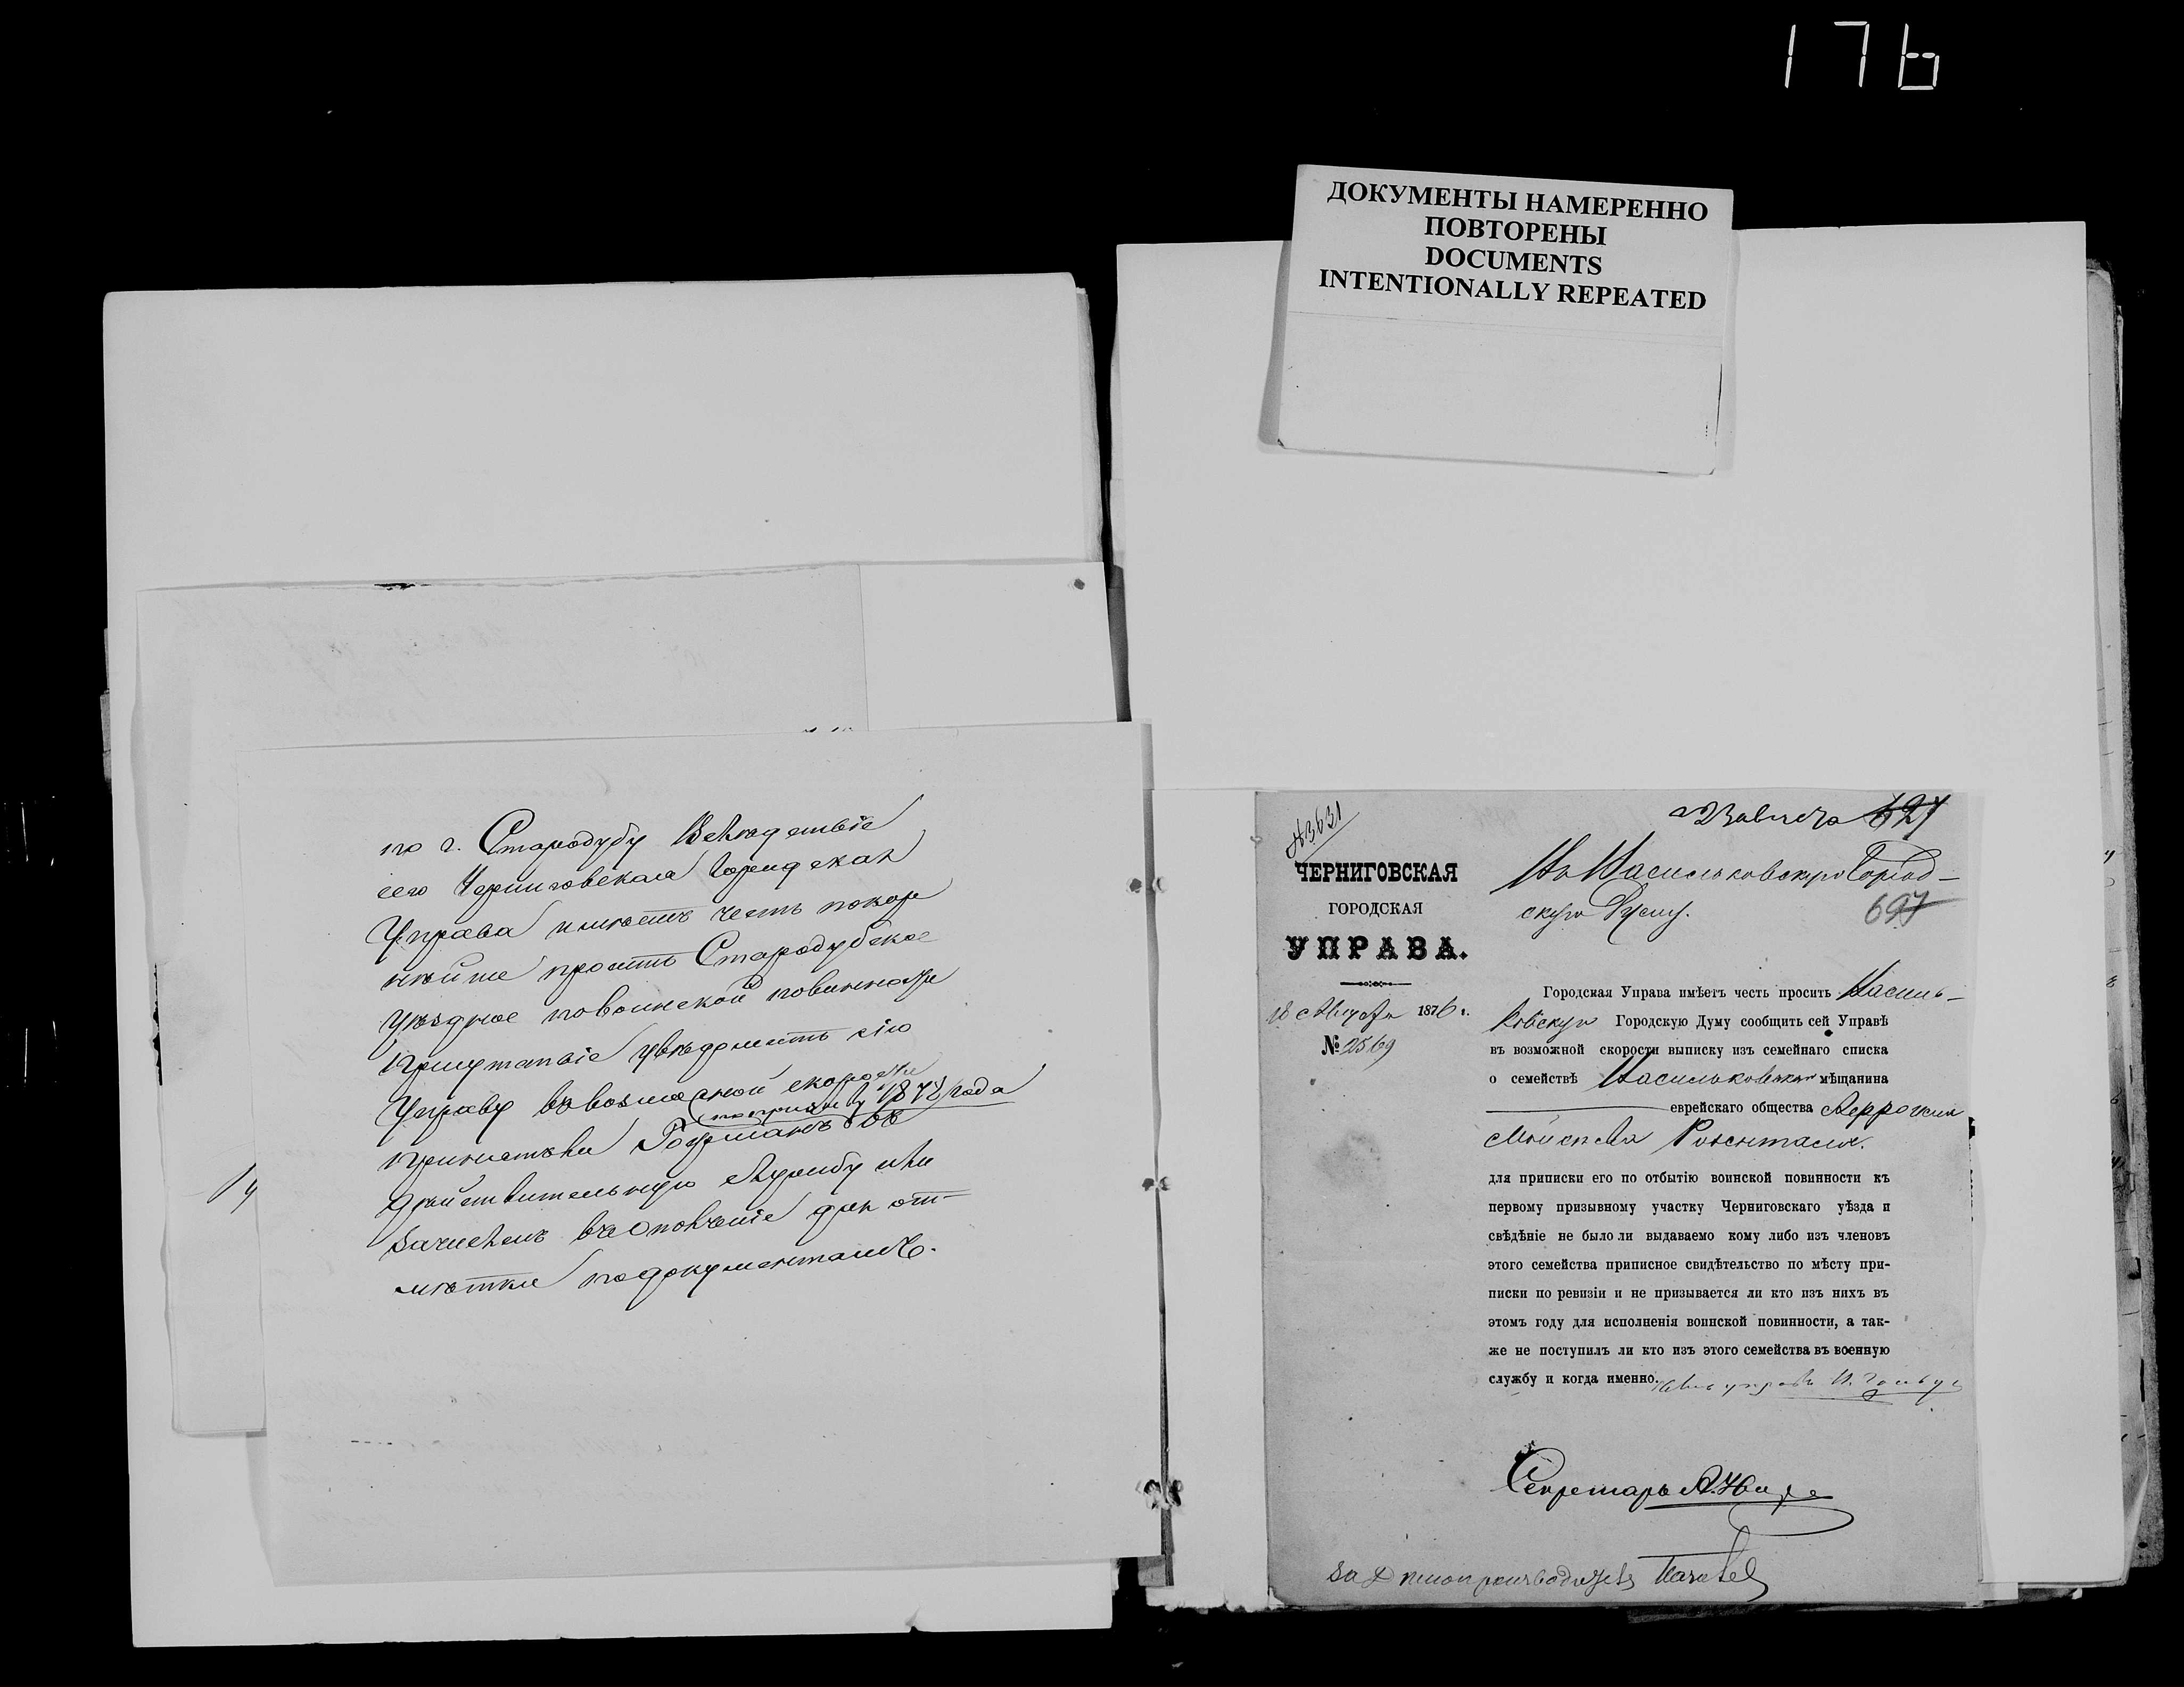 176
ДОКУМЕНТЫ НАМЕРЕННО
ПОВТОРЕНЫ
DOCUMENTS
INTENTIONALLY REPEATED
по г. Стародубу Вслѣдствіе
сего Черниговская Городская
Управа имѣетъ честь покор
нѣйше просить Стародубское
уѣздное по воинской повинности
Присутствіе увѣдомить сію
Управу въ возможной скорости
по призыву 1872 года
принятъ ли Гофманъ въ
дѣйствительную службу или
зачисленъ въ ополченіе для от-
мѣтки по документамъ.
№3631
627
ЧЕРНИГОВСКАЯ
ГОРОДСКАЯ
УПРАВА.
18 Августа 1876 г.
№ 2569
Въ Васильковскую Город-
скую Думу.
697
Городская Управа имѣетъ честь просить Василь-
ковскую Городскую Думу сообщить сей Управѣ
въ возможной скорости выписку изъ семейнаго списка
о семействѣ Васильковскаго мѣщанина
еврейскаго общества
Розенталя.
для приписки его по отбытію воинской повинности къ
первому призывному участку Черниговскаго уѣзда и
свѣдѣніе не было ли выдаваемо кому либо изъ членовъ
этого семейства приписное свидѣтельство по мѣсту при-
писки по ревизіи и не призывается ли кто изъ нихъ въ
этомъ году для исполненія воинской повинности, а так-
же не поступилъ ли кто изъ этого семейства въ военную
службу и когда именно.
Секретарь